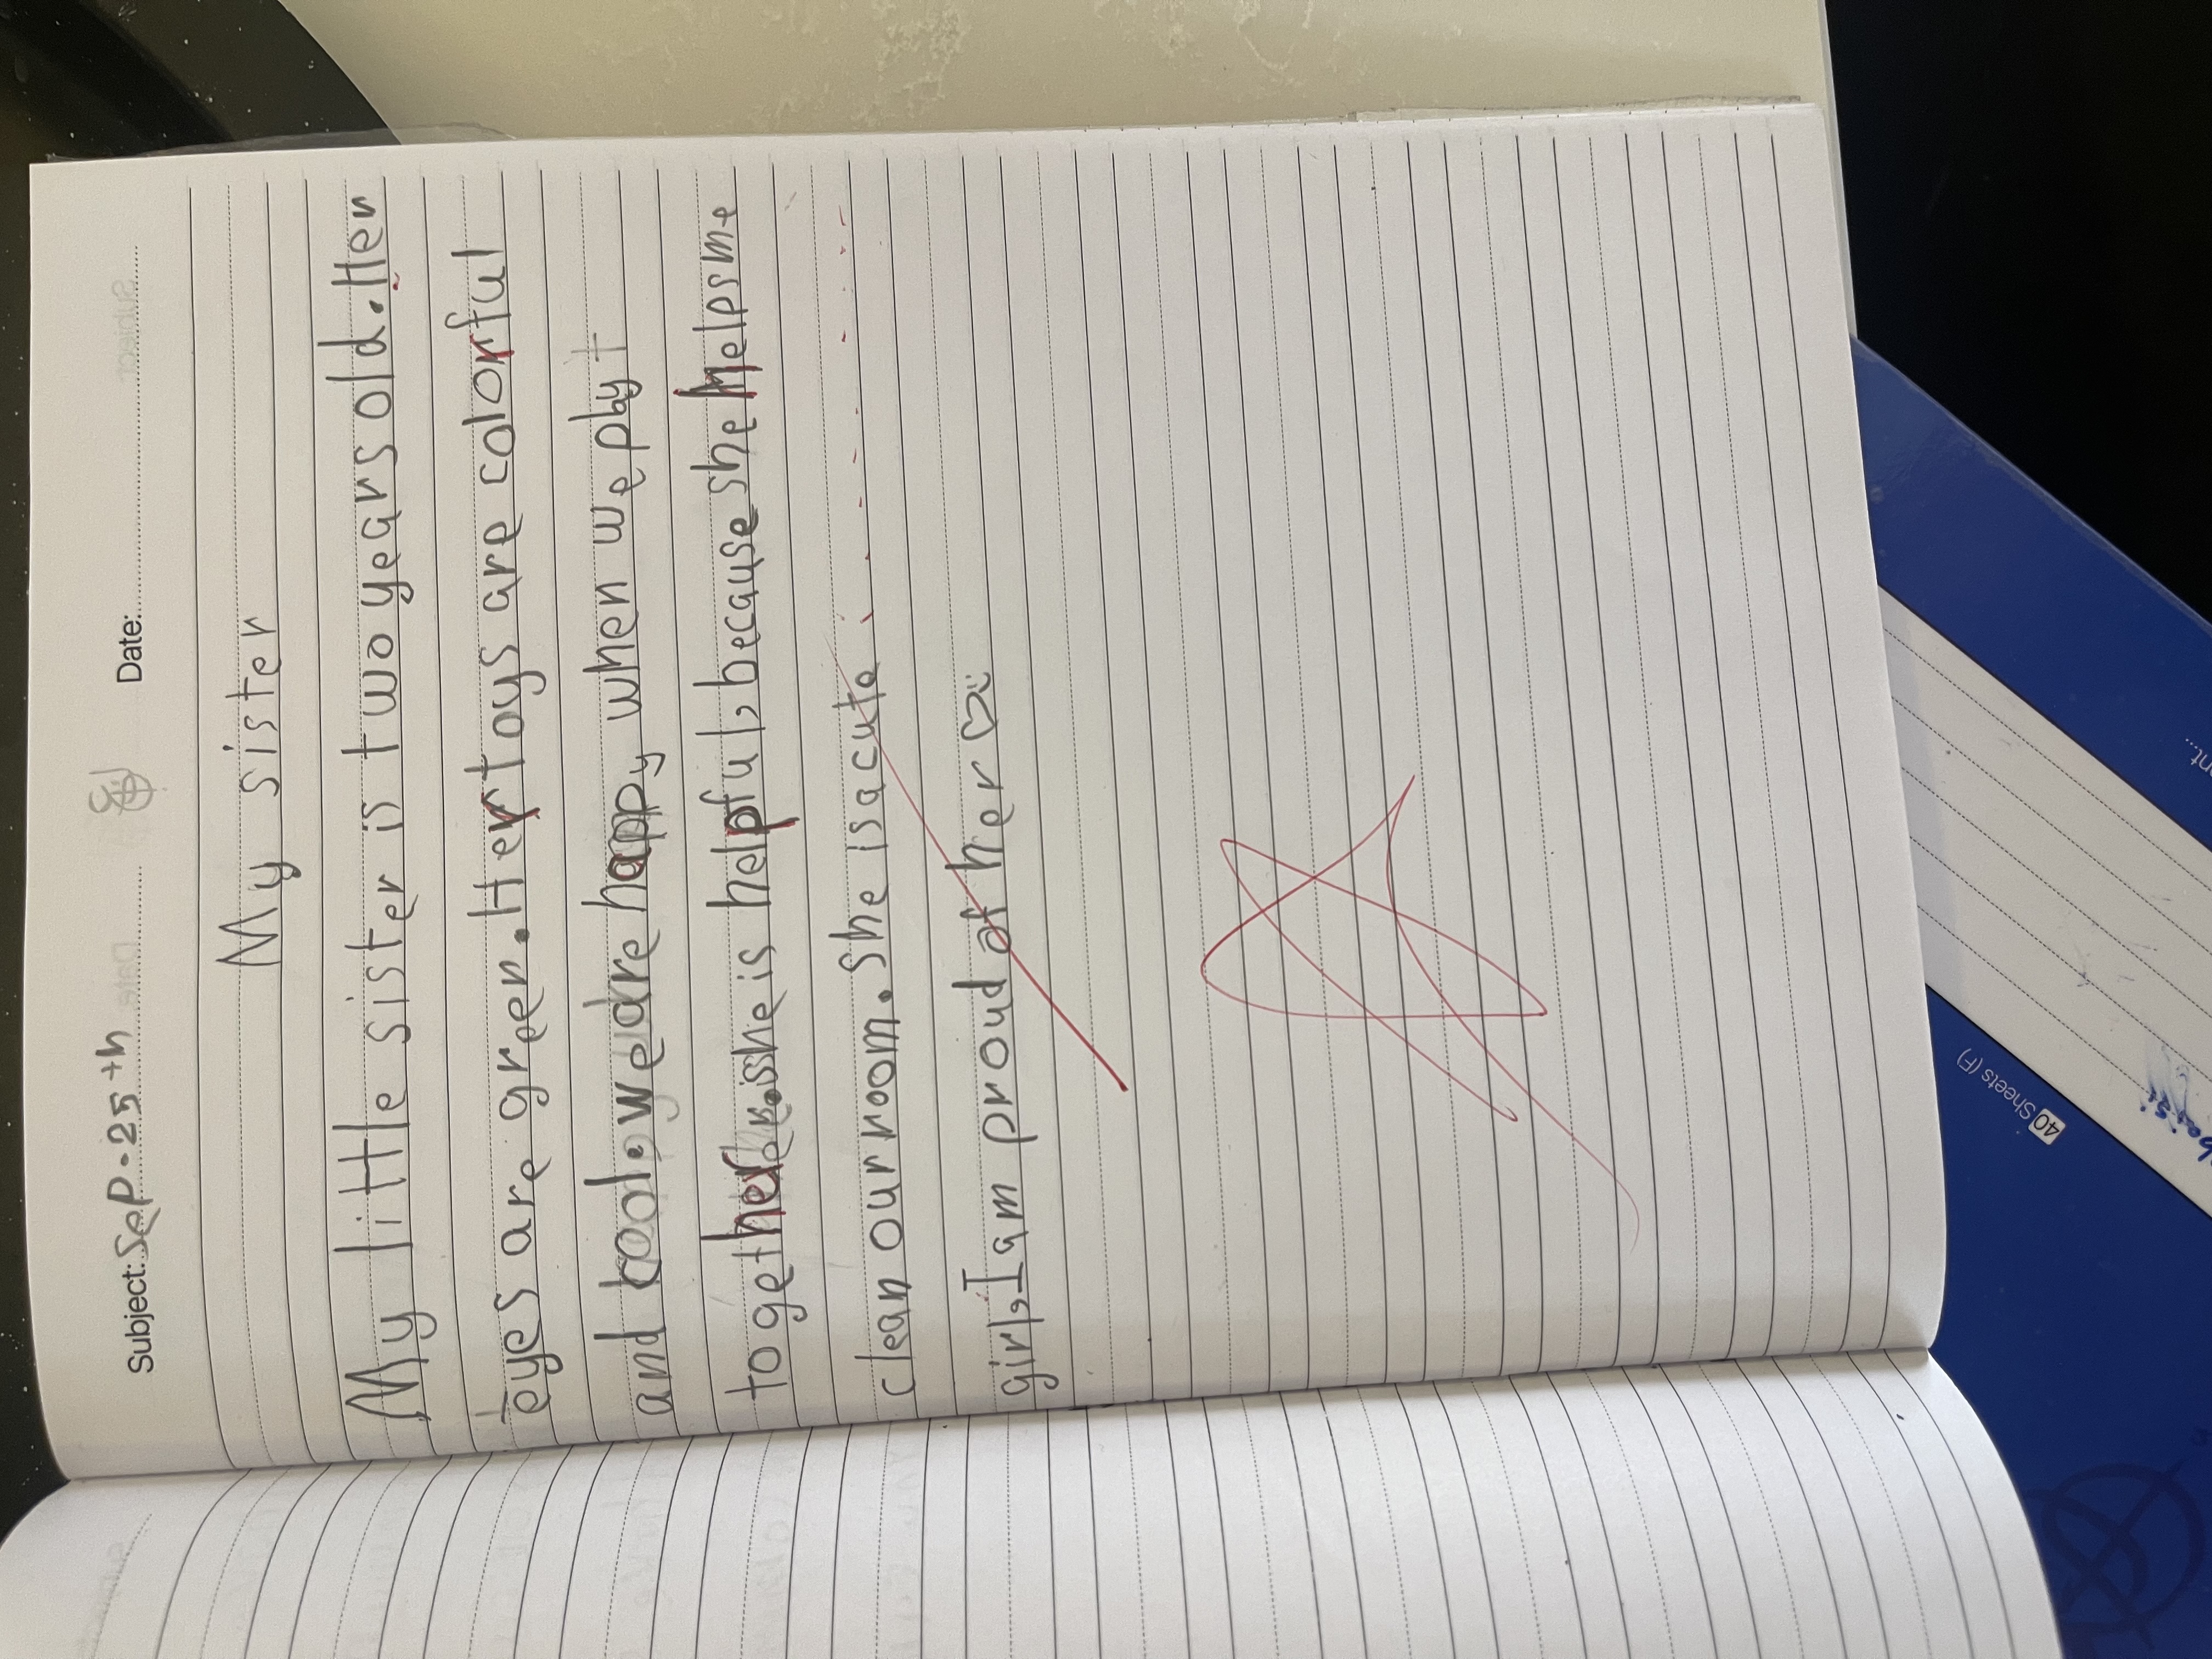 Subject: Sep. 25th Date:
My sister
My little sister is two years old. Her
eyes are green. Her toys are colorful
and cool. we are happy when we play t
together. she is helpful, because she helps me
clean our room. She is a cute
girl, I am proud of her ♡
40 Sheets (F)